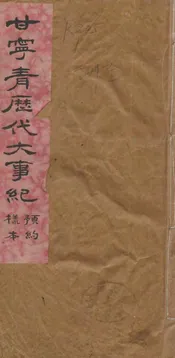 甘寧青歷代大事紀
預約
樣本